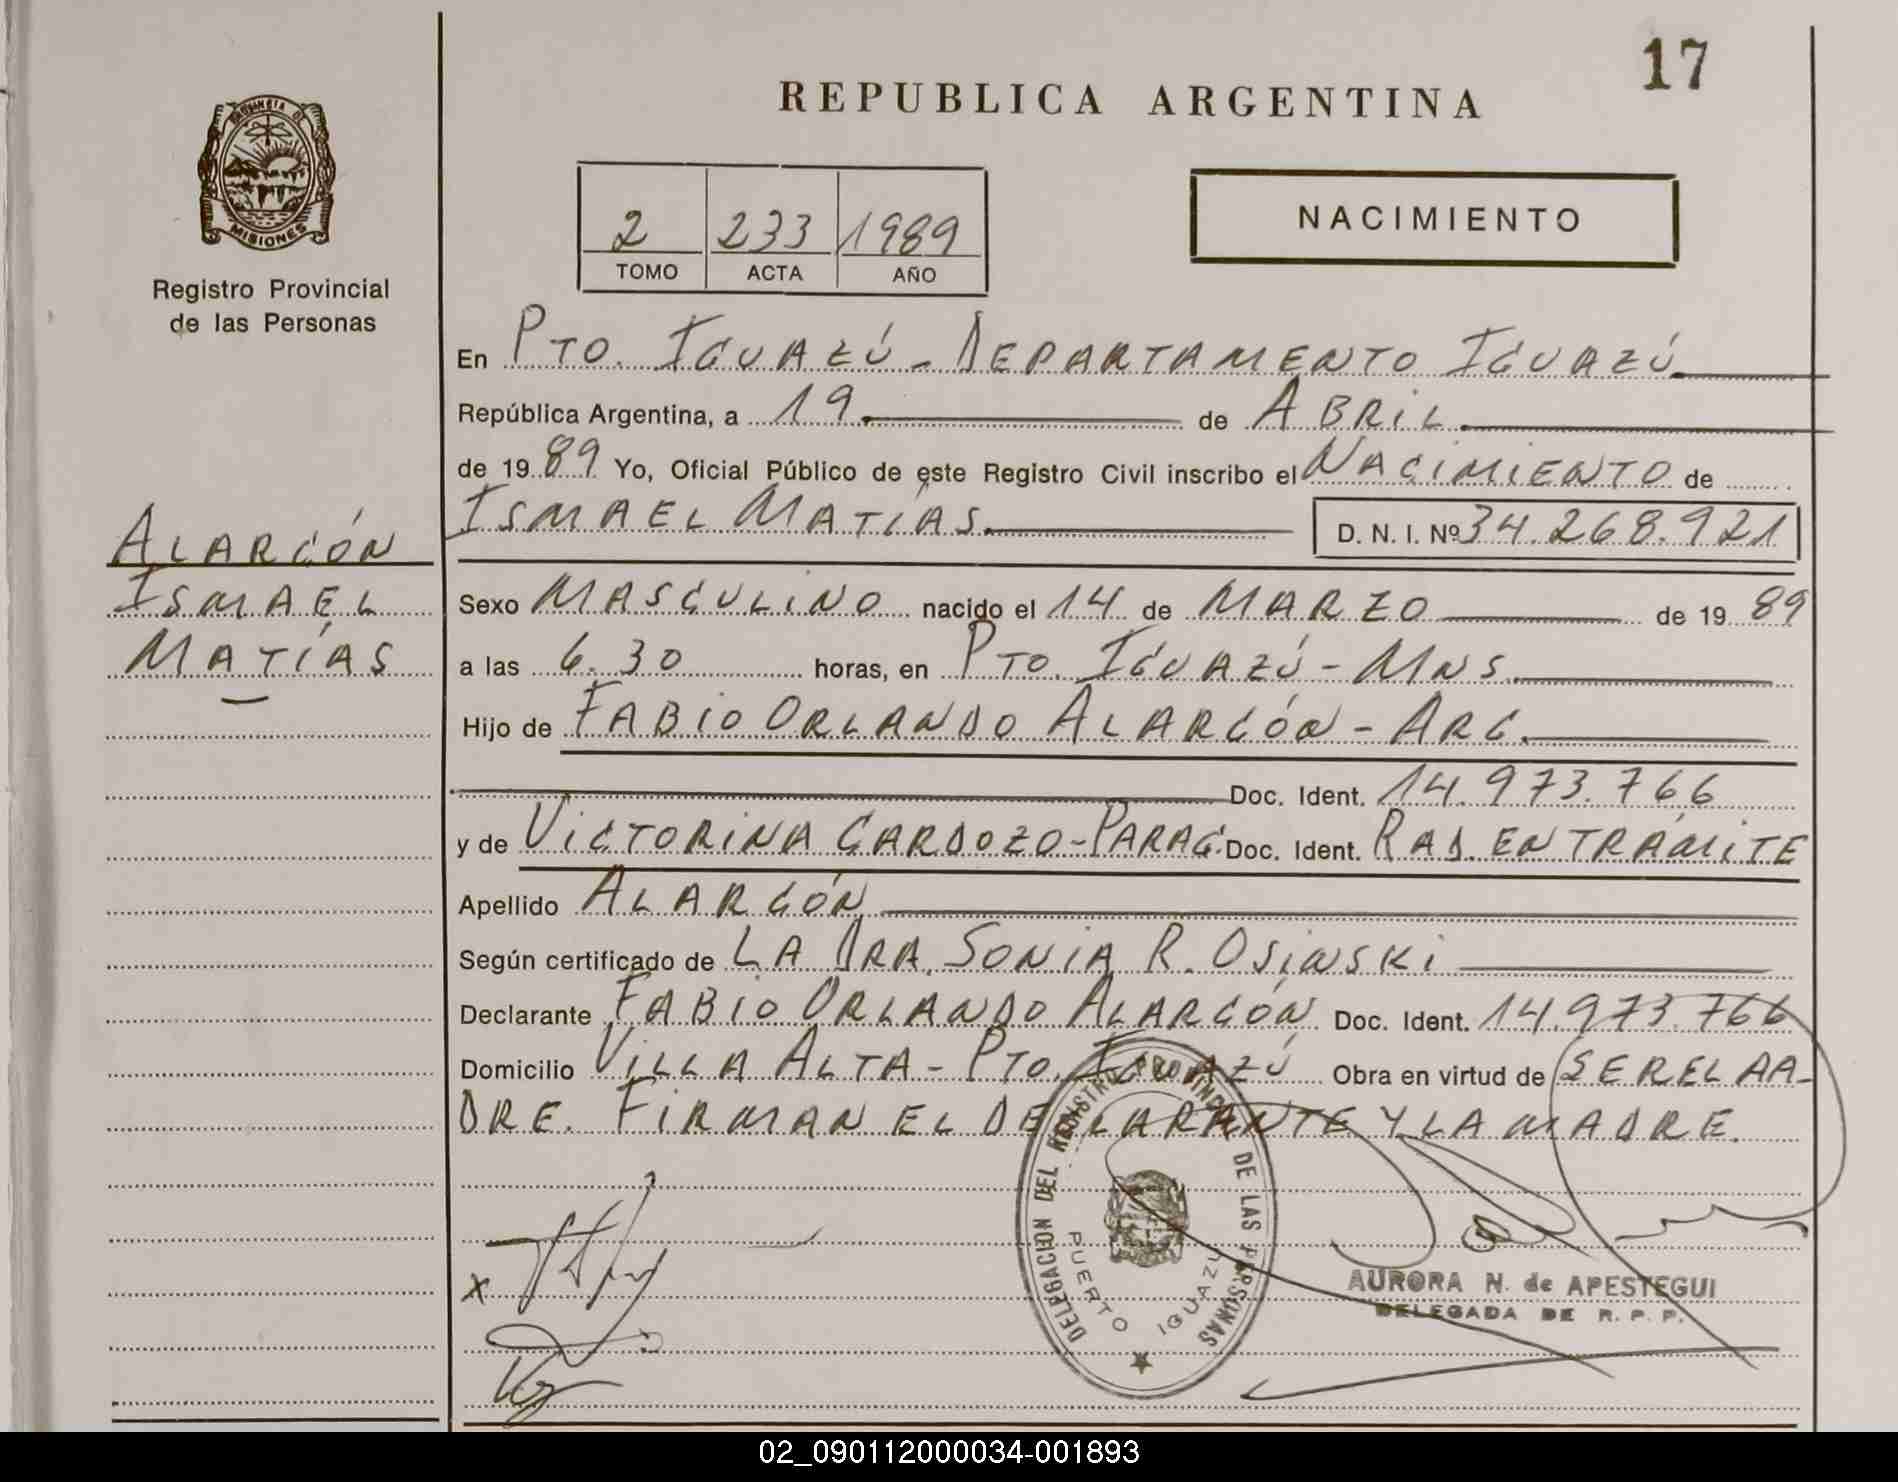 17
REPUBLICA ARGENTINA
PROVINCIA DE
MISIONES
Registro Provincial
de las Personas
2 233 1989
TOMO ACTA AÑO
NACIMIENTO
En PTO. IGUAZÚ - DEPARTAMENTO IGUAZÚ
República Argentina, a 19 de ABRIL
de 1989 Yo, Oficial Público de este Registro Civil inscribo el NACIMIENTO de
ISMAEL MATÍAS D. N. I. Nº 34.268.921
ALARCÓN
ISMAEL
MATÍAS
Sexo MASCULINO nacido el 14 de MARZO de 1989
a las 6.30 horas, en PTO. IGUAZÚ - MNS.
Hijo de FABIO ORLANDO ALARCÓN - ARG.
Doc. Ident. 14.973.766
y de VICTORINA CARDOZO - PARAG. Doc. Ident. RAD. EN TRÁMITE
Apellido ALARCÓN
Según certificado de LA DRA. SONIA R. OSINSKI
Declarante FABIO ORLANDO ALARCÓN Doc. Ident. 14.973.766
Domicilio VILLA ALTA - PTO. IGUAZÚ Obra en virtud de SER EL PA-
DRE. FIRMAN EL DECLARANTE Y LA MADRE.
DELEGACION DEL REGISTRO PROVINCIAL DE LAS PERSONAS
PUERTO IGUAZU
X
AURORA N. de APESTEGUI
DELEGADA DE R. P. P.
02_090112000034-001893